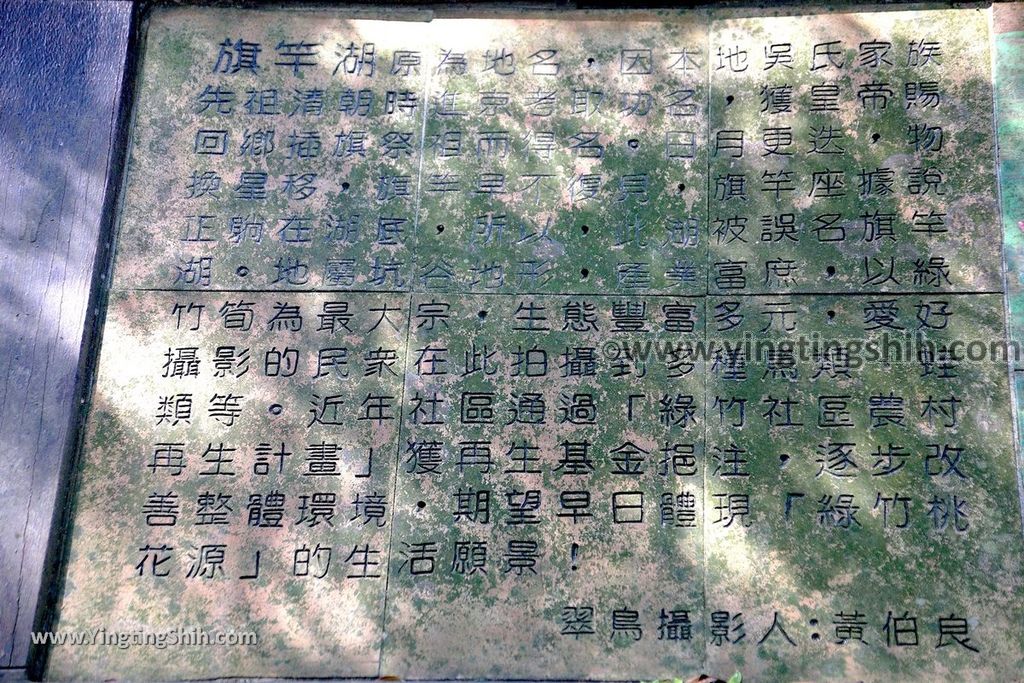 旗竿湖原為地名，因本地吳氏家族
先祖清朝時進京考取功名，獲皇帝賜
回鄉插旗祭祖而得名。日月更迭，物
換星移，旗竿早不復見，旗竿座據說
正躺在湖底，所以，此湖被誤名旗竿
湖。地屬坑谷地形，產業富庶，以綠
竹筍為最大宗，生態豐富多元，愛好
攝影的民衆在此拍攝到多種鳥類、蛙
類等。近年社區通過「綠竹社區農村
再生計畫」獲再生基金挹注，逐步改
善整體環境，期望早日體現「綠竹桃
花源」的生活願景！
翠鳥攝影人：黃伯良
©www.yingtingshih.com
www.YingtingShih.com